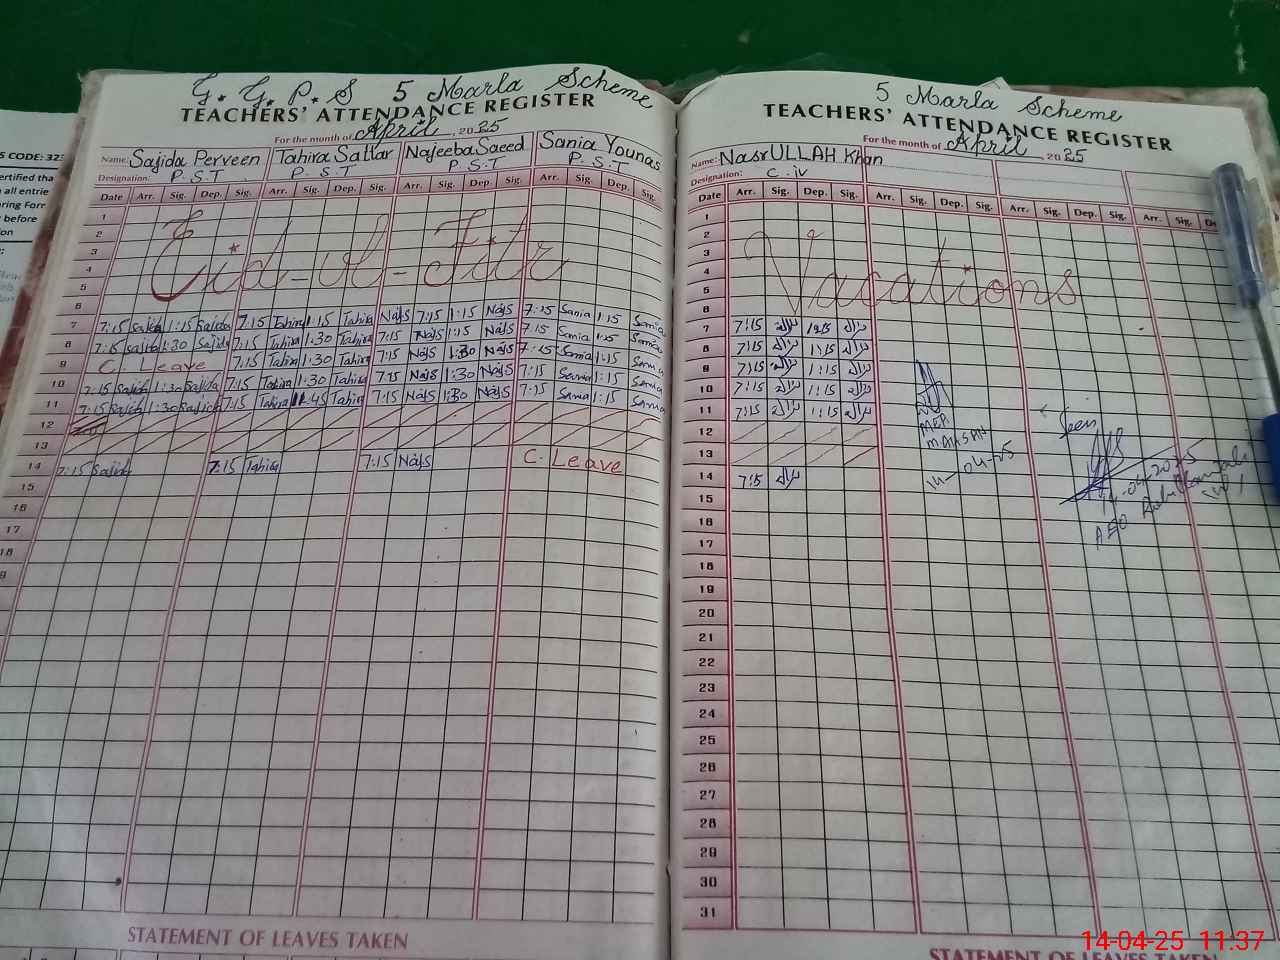 G. G. P. S 5 Marla Scheme
TEACHERS' ATTENDANCE REGISTER
For the month of April, 2025
Name: Sajida Perveen Tahira Sattar Najeeba Saeed Sania Younas
Designation: P.S.T P.S.T P.S.T P.S.T
Date Arr. Sig. Dep. Sig. Arr. Sig. Dep. Sig. Arr. Sig. Dep. Sig. Arr. Sig. Dep. Sig.
1
2
3
4
5
Eid-ul-Fitr
6
7 7:15 Sajida 1:15 Sajida 7:15 Tahira 1:15 Tahira NajS 7:15 1:15 NajS 7:15 Sania 1:15 Sania
8 7:15 Sajida 1:30 Sajida 7:15 Tahira 1:30 Tahira 7:15 NajS 1:15 NajS 7:15 Sania 1:15 Sania
9 C. Leave 7:15 Tahira 1:30 Tahira 7:15 NajS 1:30 NajS 7:15 Sania 1:15 Sania
10 7:15 Sajida 1:30 Sajida 7:15 Tahira 1:30 Tahira 7:15 NajS 1:30 NajS 7:15 Sania 1:15 Sania
11 7:15 Sajida 1:30 Sajida 7:15 Tahira 1:45 Tahira 7:15 NajS 1:30 NajS 7:15 Sania 1:15 Sania
12
13
14 7:15 Sajida 7:15 Tahira 7:15 NajS C. Leave
15
16
17
18
9
STATEMENT OF LEAVES TAKEN
5 Marla Scheme
TEACHERS' ATTENDANCE REGISTER
For the month of April 2025
Name: NasrULLAH Khan
Designation: C.iv
Date Arr. Sig. Dep. Sig. Arr. Sig. Dep. Sig. Arr. Sig. Dep. Sig. Arr. Sig.
1
2
3
4
5
Vacations
6
7 7:15 1:15
8 7:15 1:15
9 7:15 1:15
10 7:15 1:15
11 7:15 1:15
12
13
14 7:15
14-04-25
Seen
14-04-2025
AEO
15
16
17
18
19
20
21
22
23
24
25
26
27
28
29
30
31
STATEMENT OF LEAVES TAKEN
S CODE: 323
ertified tha
all entrie
ring Form
before
tion
14-04-25 11:37